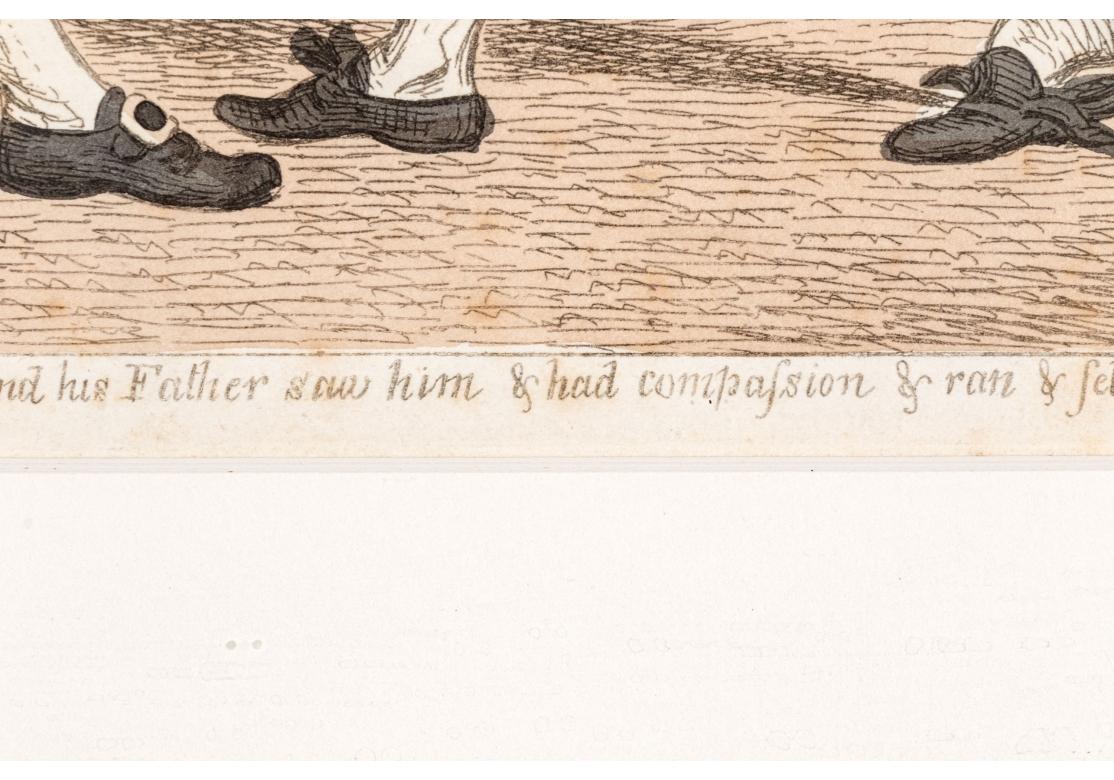 nd his Father saw him & had compaſsion & ran & fel